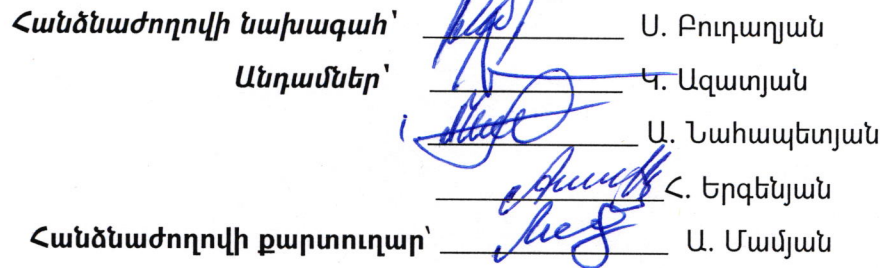 Հանձնաժողովի նախագահ՝ Ս. Բուդաղյան
Անդամներ՝ Կ. Ազատյան
Ա. Նահապետյան
Հ. Երգենյան
Հանձնաժողովի քարտուղար՝ Ա. Մամյան